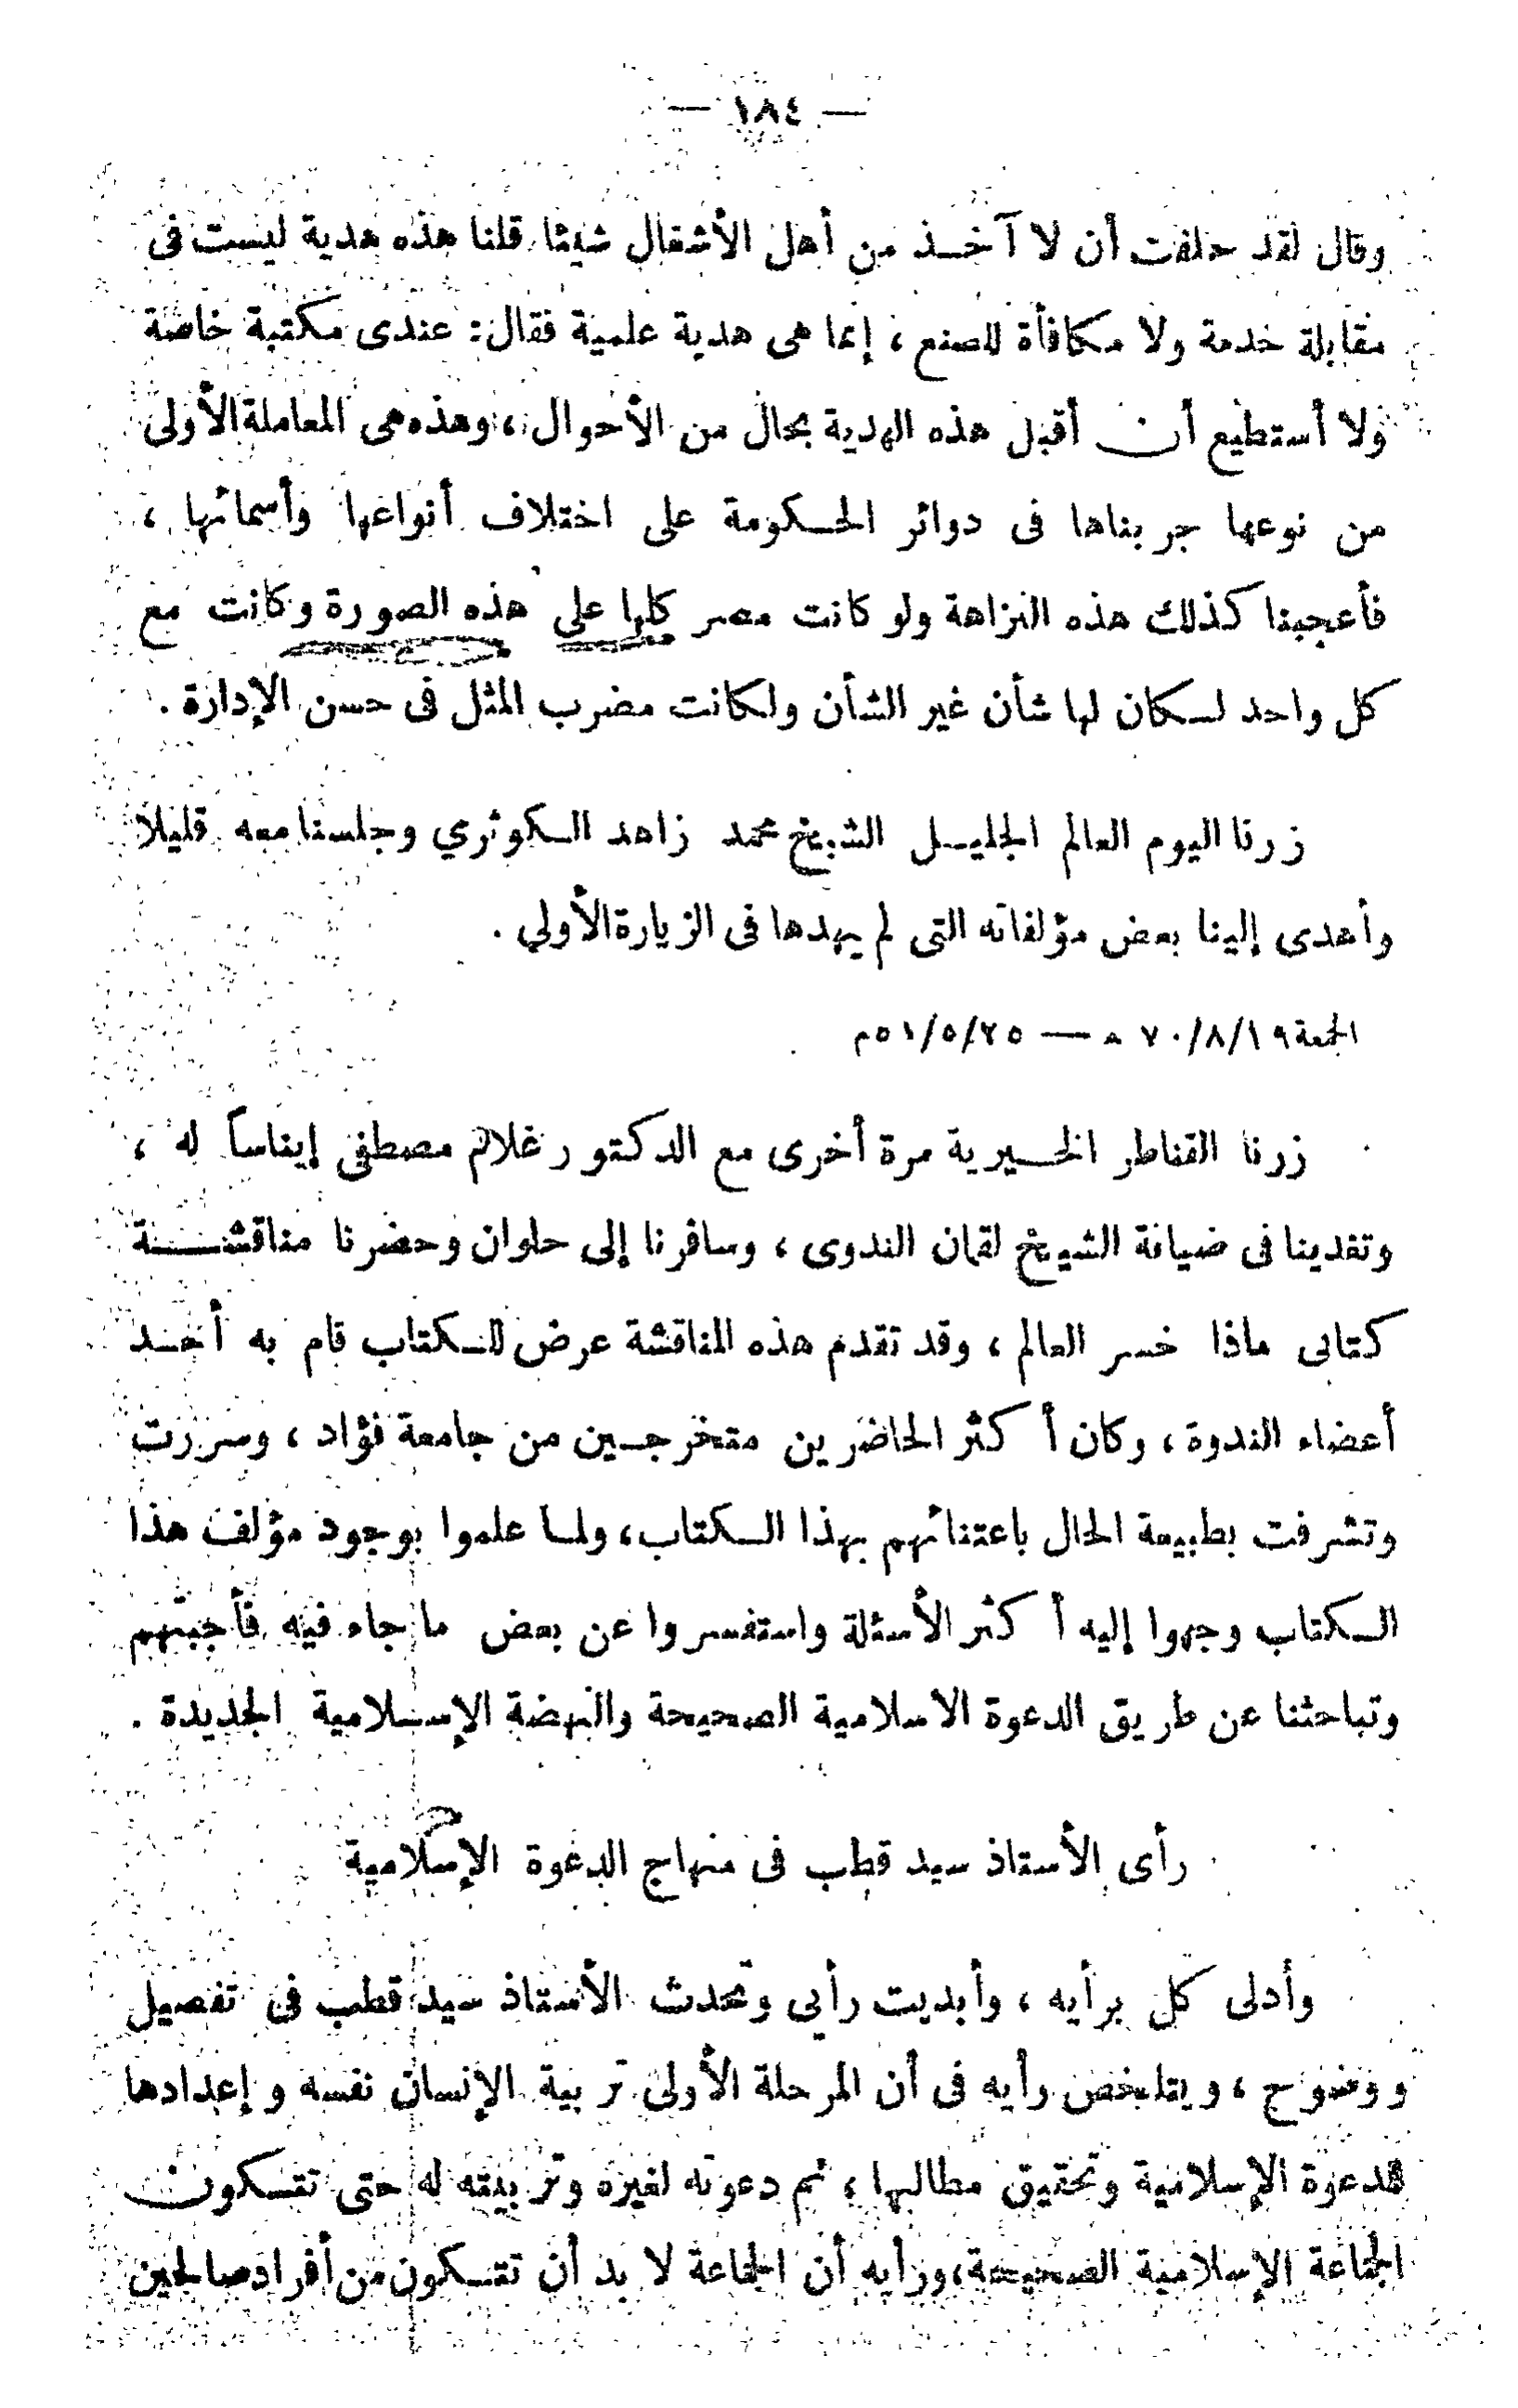 — ١٨٤ —
وقال لقد حلفت أن لا آخذ من أهل الأشغال شيئا قلنا هذه هدية ليست فى
مقابلة خدمة ولا مكافأة للصنع ، إنما هى هدية علمية فقال: عندى مكتبة خاصة
ولا أستطيع أن أقبل هذه الهدية بحال من الأحوال ، وهذه هى المعاملة الأولى
من نوعها جربناها فى دوائر الحكومة على اختلاف أنواعها وأسمائها ،
فأعجبنا كذلك هذه النزاهة ولو كانت مصر كلها على هذه الصورة وكانت مع
كل واحد لكان لها شأن غير الشأن ولكانت مضرب المثل فى حسن الإدارة .
زرنا اليوم العالم الجليل الشيخ محمد زاهد الكوثري وجلسنا معه قليلا
وأهدى إلينا بعض مؤلفاته التى لم يهدها فى الزيارة الأولي .
الجمعة ٧٠/٨/١٩ ه — ٥١/٥/٢٥ م
زرنا القناطر الخيرية مرة أخرى مع الدكتور غلام مصطفى إيناساً له ،
وتغدينا فى ضيافة الشيخ لقمان الندوى ، وسافرنا إلى حلوان وحضرنا مناقشة
كتابى ماذا خسر العالم ، وقد تقدم هذه المناقشة عرض للكتاب قام به أحد
أعضاء الندوة ، وكان أكثر الحاضرين متخرجين من جامعة فؤاد ، وسررت
وتشرفت بطبيعة الحال باعتنائهم بهذا الكتاب ، ولما علموا بوجود مؤلف هذا
الكتاب وجهوا إليه أكثر الأسئلة واستفسروا عن بعض ما جاء فيه فأجبتهم
وتباحثنا عن طريق الدعوة الاسلامية الصحيحة والنهضة الإسلامية الجديدة .
رأى الأستاذ سيد قطب فى منهاج الدعوة الإسلامية
وأدلى كل برأيه ، وأبديت رأيى وتحدث الأستاذ سيد قطب فى تفصيل
ووضوح ، ويتلخص رأيه فى أن المرحلة الأولى تربية الإنسان نفسه وإعدادها
للدعوة الإسلامية وتحقيق مطالبها ، ثم دعوته لغيره وتربيته له حتى تتكون
الجماعة الإسلامية الصحيحة ، ورأيه أن الجماعة لا بد أن تتكون من أفراد صالحين